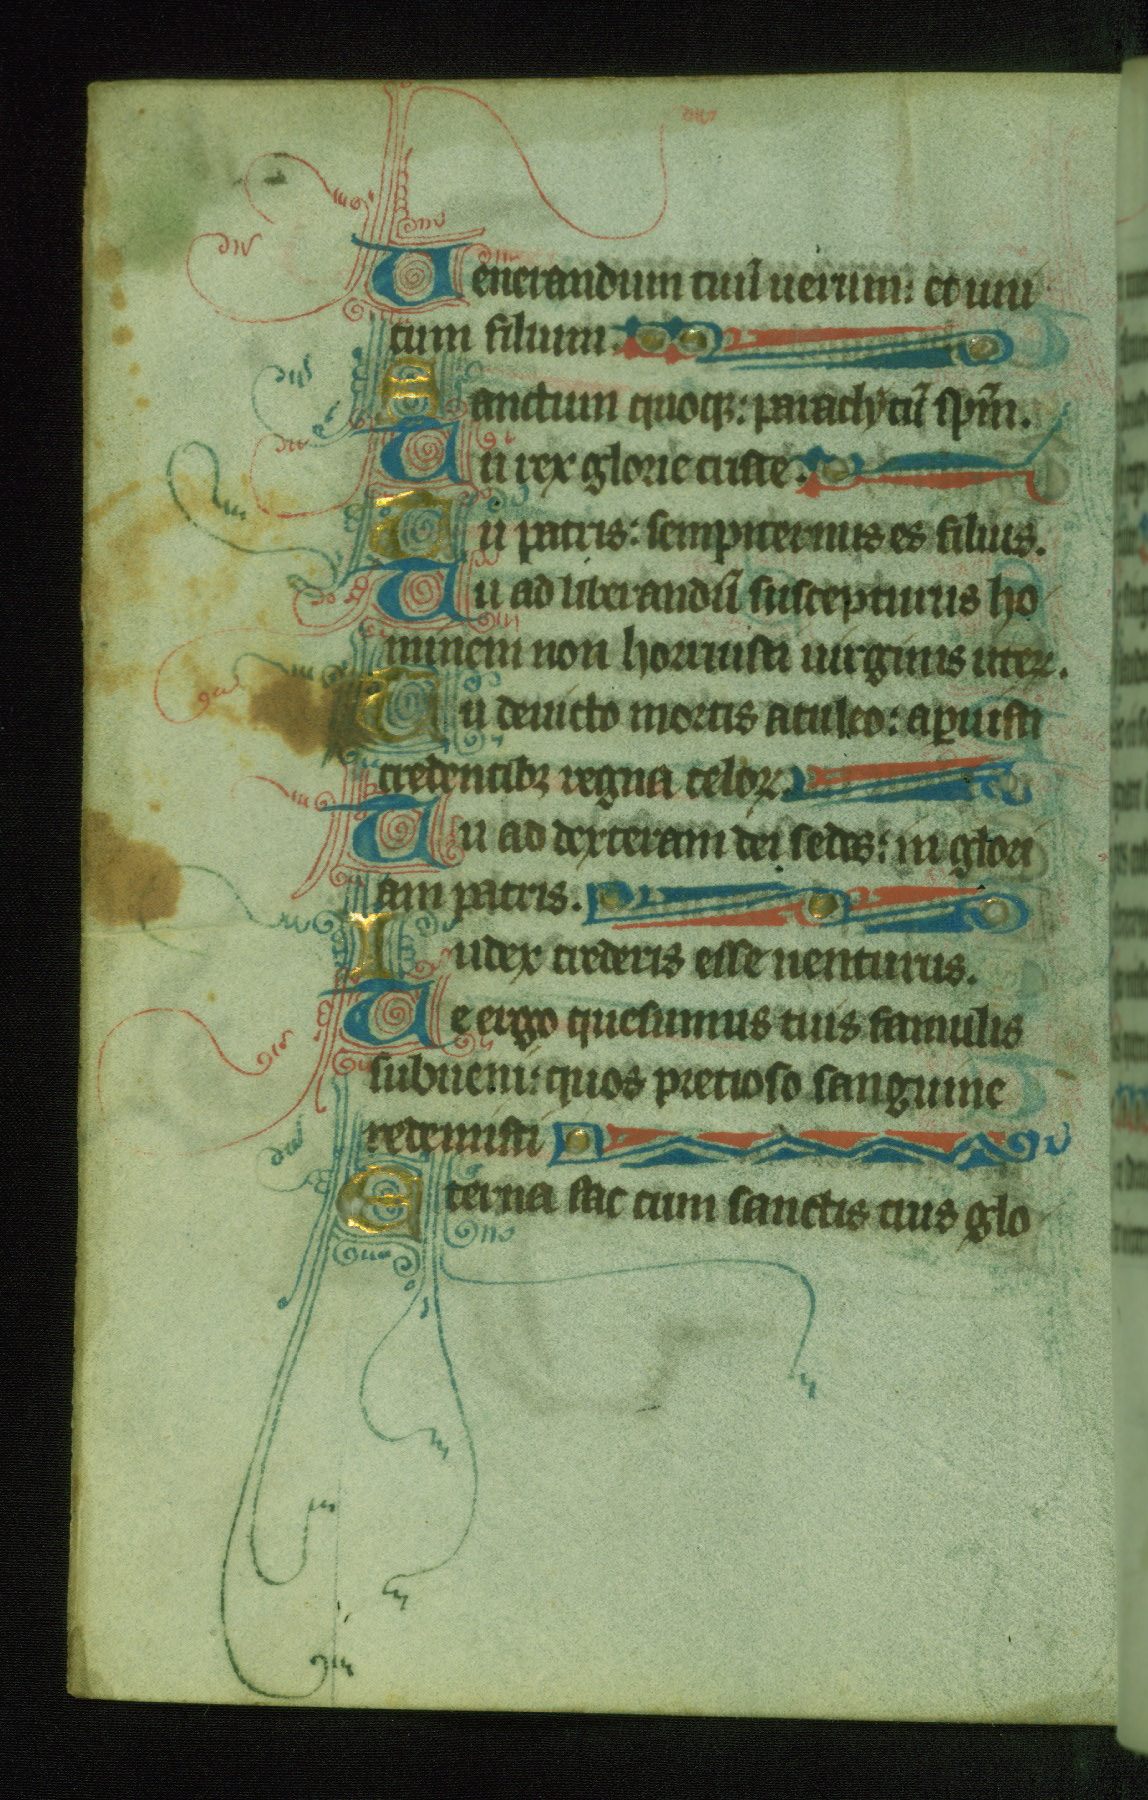 Uenerandum tuũ uerum: et uni
cum filium.
Sanctum quoqꝫ: paraclytũ spm̃.
Tu rex glorie criste.
Tu patris: sempiternus es filius.
Tu ad liberandũ suscepturus ho
minem non horruisti uirginis uterꝫ.
Tu deuicto mortis aculeo: aꝑuisti
credentibꝫ regna celoꝝ.
Tu ad dexteram dei sedes: in glori
am patris.
Iudex crederis esse uenturus.
Te ergo quesumus tuis famulis
subueni: quos precioso sanguine
redemisti
Eterna fac cum sanctis tuis glo